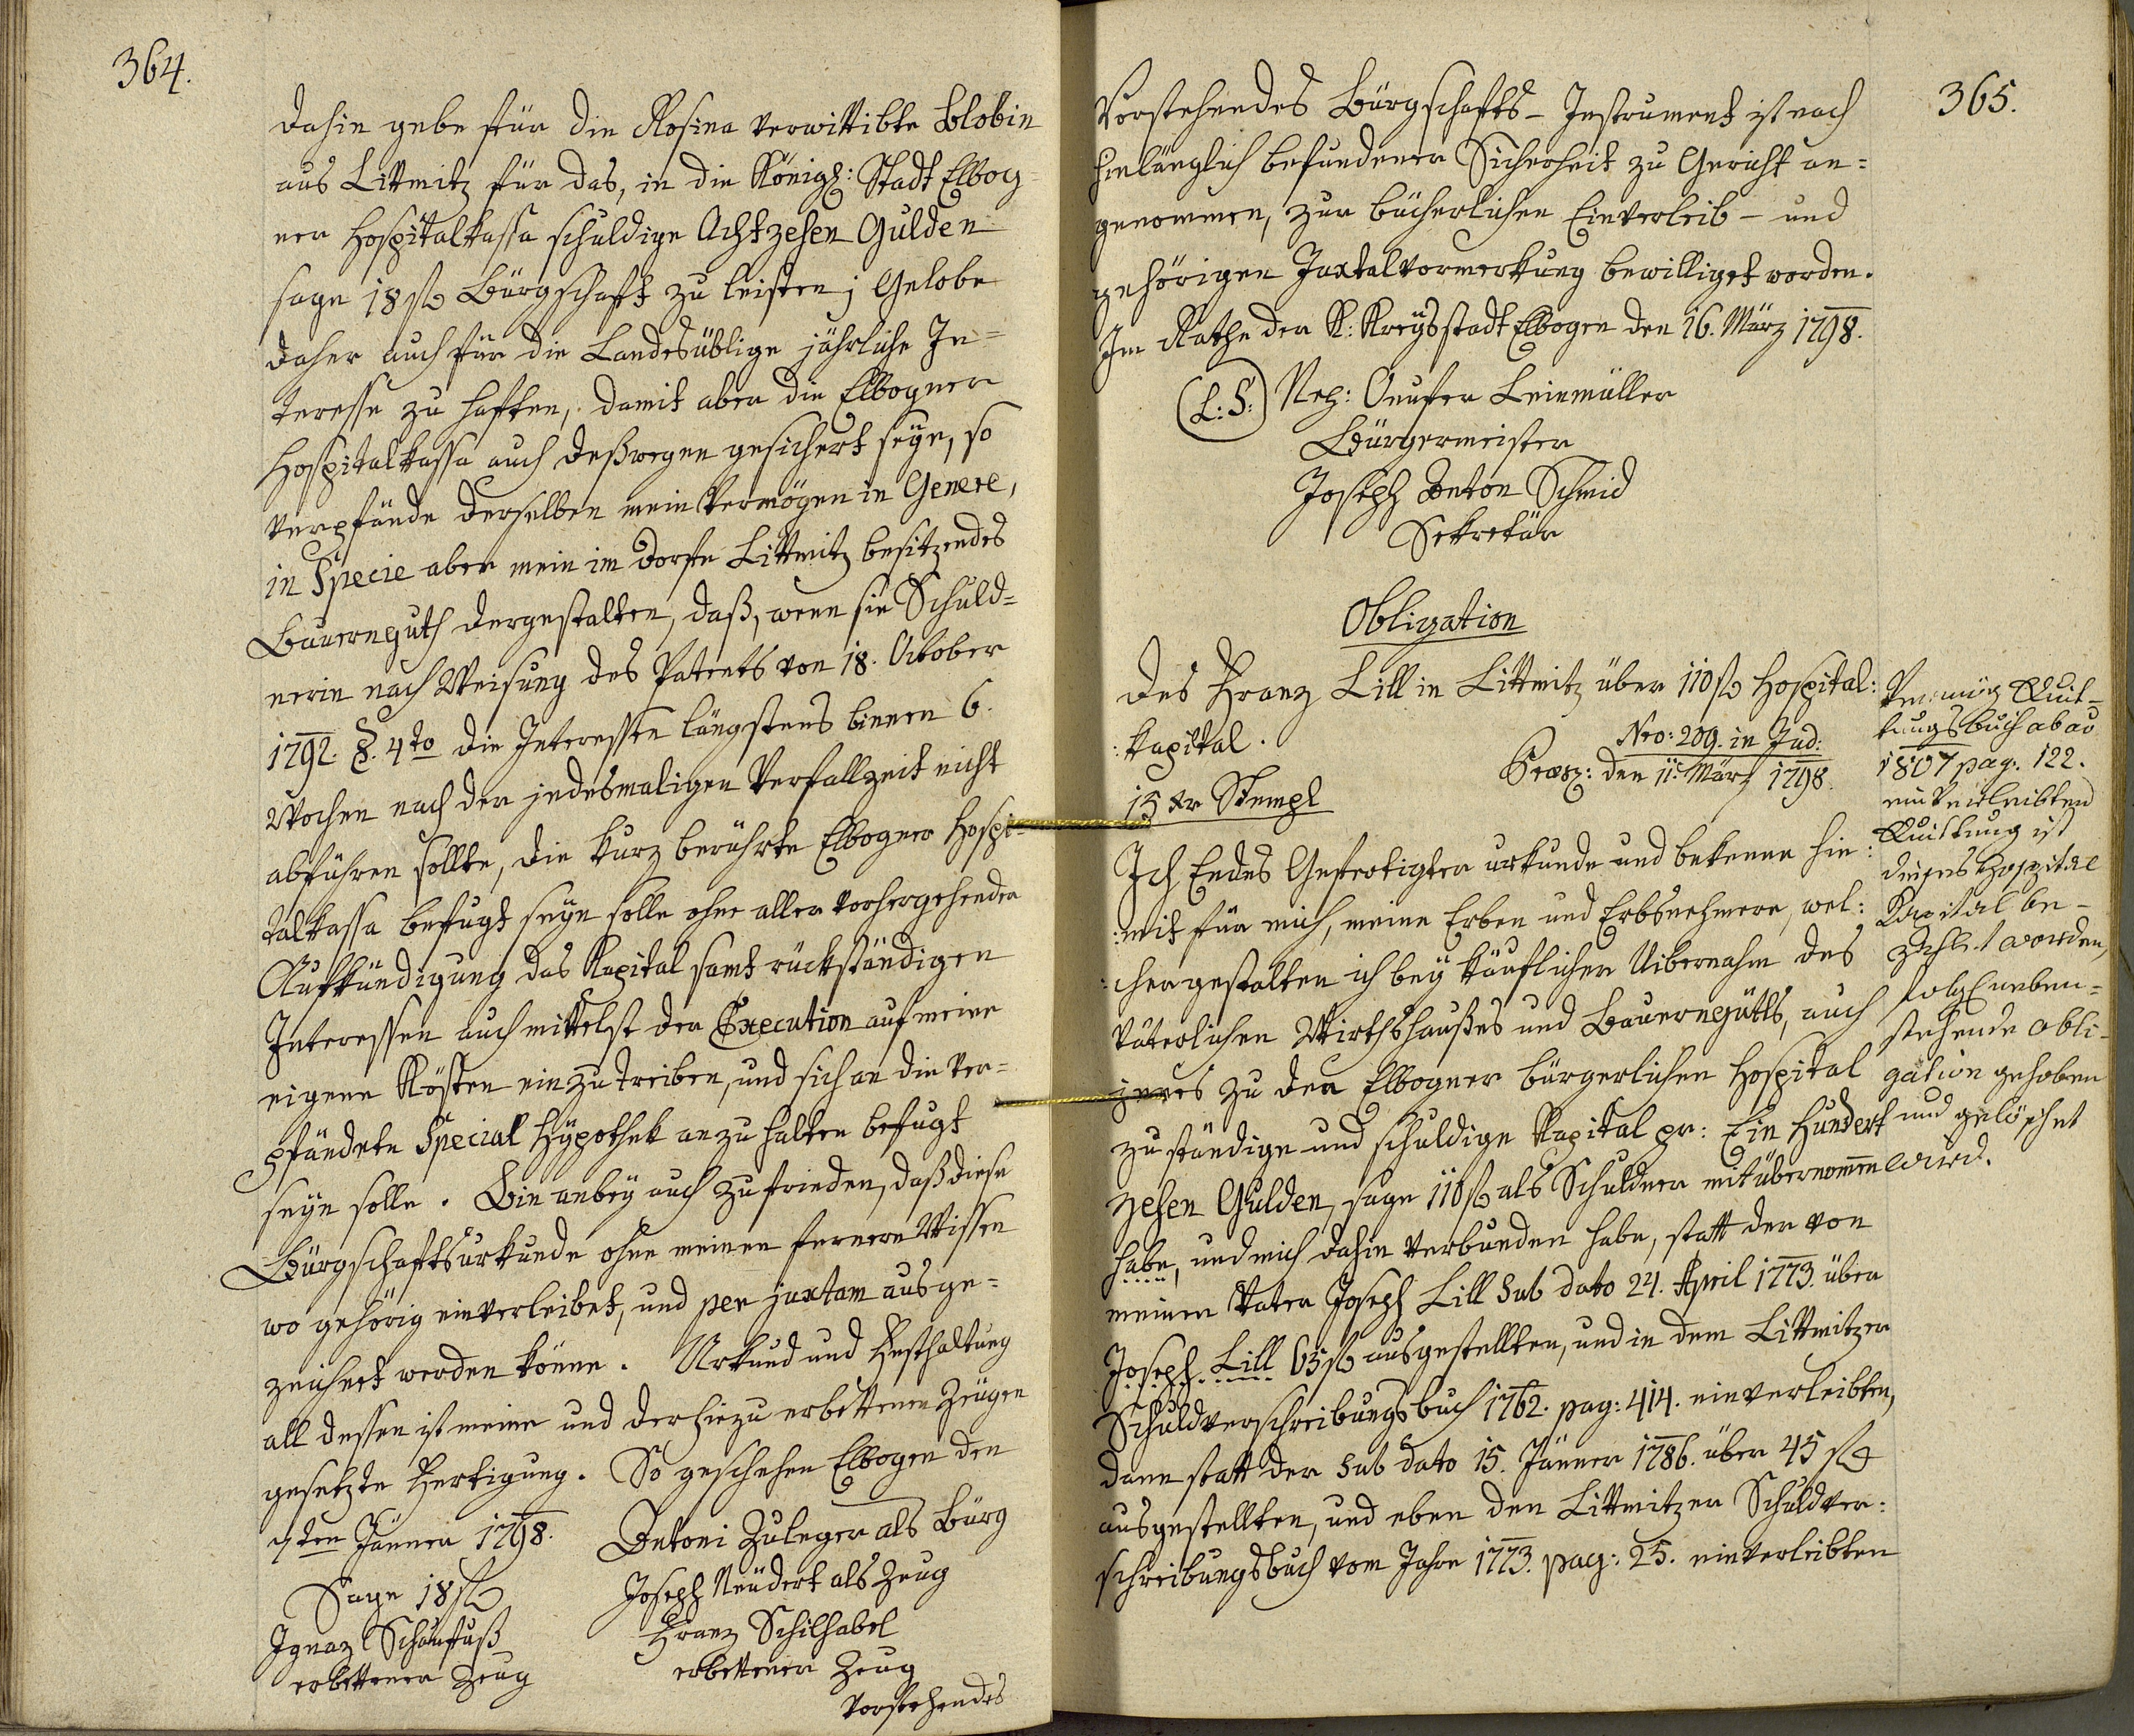 364.
dahin gebe für die Rosina verwittibte Blobin
aus Littmitz für das, in die Königl: Stadt Elbog=
ner Hospitalkassa schuldige Achtzehen Gulden
sage 18 fl Bürgschaft zu leisten; Gelobe
daher auch für die Landesüblige jährliche In=
teresse zu haften, damit aber die Elbogner
Hospitalkassa auch deßwegen gesichert seye, so
verpfände derselben mein Vermögen in Genere,
in Specie aber mein im Dorfe Littmitz besitzendes
Bauernguth dergestalten, daß, wenn sie Schuld=
nerin nach Weisung des Patents von 18. October
1792. §. 4to die Interessen längstens binnen 6.
Wochen nach der jedesmaligen Verfallzeit nicht
abführen sollte, die kurz berührte Elbogner Hospi=
talkassa befugt seyn solle ohne aller vorhergehender
Aufkündigung das Kapital samt rückständigen
Interessen auch mittelst der Execution auf meine
eigene Kösten einzutreiben, und sich an die ver=
pfändete Special Hypothek anzuhalten befugt
seyn solle. Bin anbey auch zufrieden, daß diese
Bürgschaftsurkunde ohne meinen fernern Wissen
wo gehörig einverleibet, und per juxtam ausge=
zeichnet werden könne. Urkund und Festhaltung
all dessen ist meine und der hiezu erbettenen Zeügen
gesetzte Fertigung. So geschehen Elbogen den
7ten Jänner 1798. Antoni Zuleger als Bürg
Sage 18 fl Joseph Neudert als Zeug
Ignaz Schaufuß Franz Schilhabel
erbettener Zeug erbettener Zeug
Vorstehendes
365.
Vorstehendes Bürgschafts- Instrument ist nach
hinlänglich befundener Sicherheit zu Gericht an=
genommen, zur bücherlichen Einverleib- und
gehörigen Juxtalvormerkung bewilliget worden.
Im Rathe der K: Kreysstadt Elbogen den 16. März 1798.
(L:S:) Nep: Onufer Leinmüller
Bürgermeister
Joseph Anton Schmid
Sekretär
Obligation
des Franz Lill in Littmitz über 110 fl Hospital:
:kapital.
Nro: 209. in Jud:
Praes: den 11. März 1798.
15 xr Stempl
Ich Endes Gefertigter urkunde und bekenne hie:
:mit für mich, meine Erben und Erbsnehmere, wel:
:chergestalten ich bey käuflicher Uibernahm des
väterlichen Wirthshaußes und Bauerngütls, auch
jenes zu der Elbogner bürgerlichen Hospital
zuständige und schuldige Kapital pr: Ein Hundert
zehen Gulden, sage 110 fl als Schuldner mitübernommen
habe, und mich dahin verbunden habe, statt der von
meinen Vater Joseph Lill Sub dato 24. April 1773. über
Joseph Lill 65 fl ausgestellten, und in dem Littmitzer
Schuldverschreibungsbuch 1762. pag: 414. einverleibten,
dann statt der Sub dato 15. Jänner 1786. über 45 fl
ausgestellten, und eben den Littmitzer Schuldver:
schreibungsbuch vom Jahre 1773. pag: 25. einverleibten
Vermög Quit-
tungsbuch ab ao
1807 pag. 122.
einverleibten
Quittung ist
dieses Hospital
Kapital be-
zahlt worden,
folgl neben=
stehende obli-
gation gehoben
und gelöschet
wird.